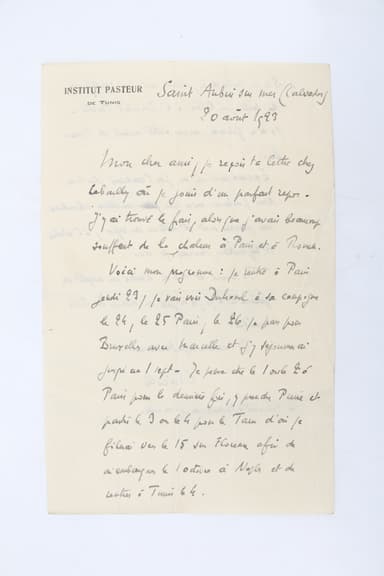 INSTITUT PASTEUR
DE TUNIS
Saint Aubin sur mer (Calvados)
20 août 1923
Mon cher ami, je reçois ta lettre chez
où je jouis d'un parfait repos.
J'y ai trouvé le frais, alors que j'avais beaucoup
souffert de la chaleur à Paris et à Rouen.
Voici mon programme : je rentre à Paris
jeudi 23, je vais voir Duhamel à sa campagne
le 24, le 25 Paris, le 26 je pars pour
Bruxelles avec Marcelle et j'y séjournerai
jusqu'au 1 sept - Je serai le 1 ou le 2 à
Paris pour la dernière fois, y prendre Pierre et
partir le 3 ou le 4 pour le Tarn d'où je
filerai vers le 15 sur afin de
m'embarquer le 1 octobre à Naples et de
rentrer à Tunis le 4.